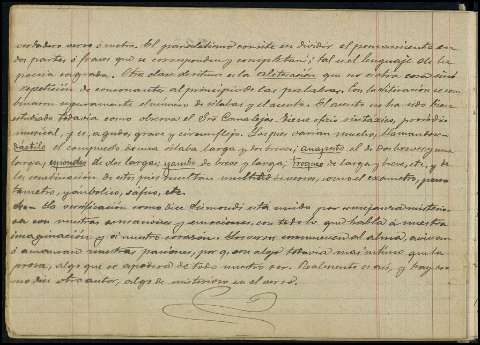 verdadero verso ó metro. El paralelismo consiste en dividir el pensamiento en
dos partes ó frases que se corresponden y completan; tal es el lenguaje de la
poesía sagrada. Otra clase de ritmo es la aliteración que no es otra cosa sinó
repetición de consonantes al principio de las palabras. Con la aliteración se com
binaron seguramente el número de sílabas y el acento. El acento no ha sido bien
estudiado todavía como observa el Sr. Canalejas. Tiene oficio sintáxico, prosódico
musical, y es, agudo, grave y circunflejo. Los pies varían mucho, llamándose
dáctilo el compuesto de una sílaba larga y dos breves; anapesto el de dos breves y una
larga; espondeo de dos largas; yambo de breve y larga; troqueo de larga y breve, etc., y de
la combinación de estos pies resultan multitud diversos, como el exámetro, pen
támetro, yámbico, sáfico, etc.
La versificación como dice Edmond está unida por semejanza misterio
sa con nuestras sensaciones y emociones, con todo lo que habla á nuestra
imaginación y á nuestro corazón. Los versos conmueven el alma, avivan
ó amansan nuestras pasiones, por q. son algo todavía mas íntimo que la
prosa, algo que se apodera de todo nuestro ser. Realmente es así, y hay co
mo dice otro autor, algo de misterioso en el verso.